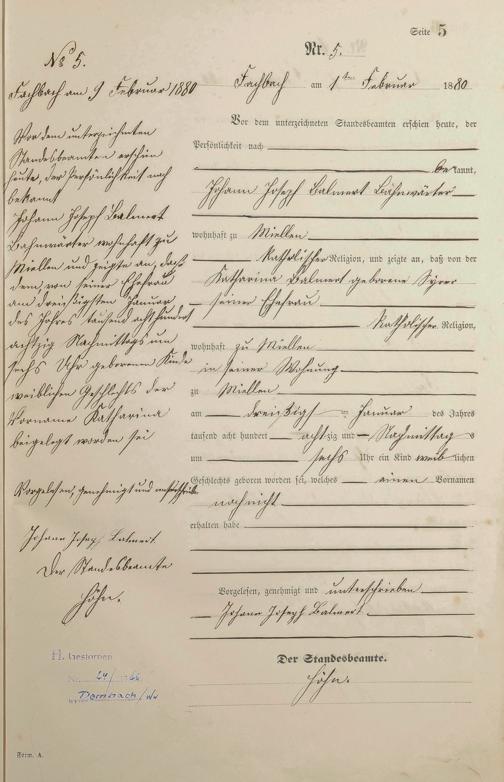 Seite 5
Nr. 5.
Fachbach am 1ten Februar 1880
Vor dem unterzeichneten Standesbeamten erschien heute, der
Persönlichkeit nach
bekannt,
Johann Joseph Balmert Bahnwärter
wohnhaft zu Miellen
katholischer Religion, und zeigte an, daß von der
Katharina Balmert geborene
seiner Ehefrau
katholischer Religion,
wohnhaft zu Miellen
in seiner Wohnung
zu Miellen
am dreißigst Januar des Jahres
tausend acht hundert achtzig und Nachmittag s
um sechs Uhr ein Kind weiblichen
Geschlechts geboren worden sei, welches einen Vornamen
noch nicht
erhalten habe
Vorgelesen, genehmigt und unterschrieben
Johann Joseph Balmert
Der Standesbeamte.
Höhn.
No 5.
Fachbach am 9 Februar 1880
Vor dem unterzeichneten
Standesbeamten erschien
heute, der Persönlichkeit nach
bekannt
Johann Joseph Balmert
Bahnwärter wohnhaft zu
Miellen und zeigte an, daß
dem, von seiner Ehefrau
am dreißigsten Januar
des Jahres tausend achthundert
achtzig Nachmittags um
sechs Uhr geborenen Kinde
weiblichen Geschlechts der
Vorname Katharina
beigelegt worden sei
Vorgelesen, genehmigt und unterschrieben
Johann Joseph Balmert
Der Standesbeamte
Höhn.
Gestorben
Nr.
Form. A.